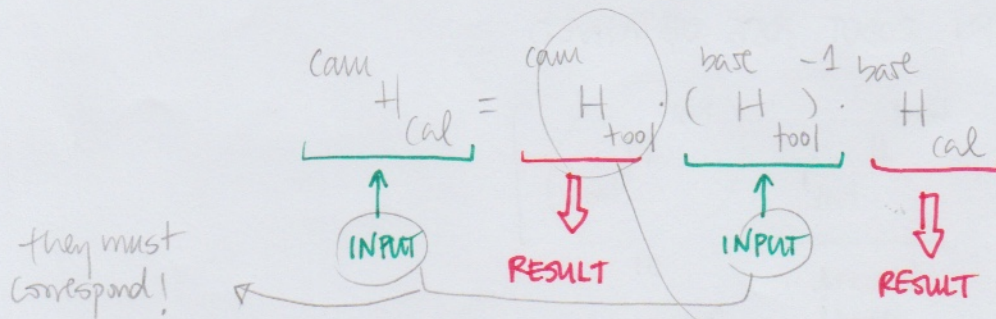 cam H cal = cam H tool · ( base H tool ) -1 · base H cal
INPUT INPUT
RESULT RESULT
they must
correspond!